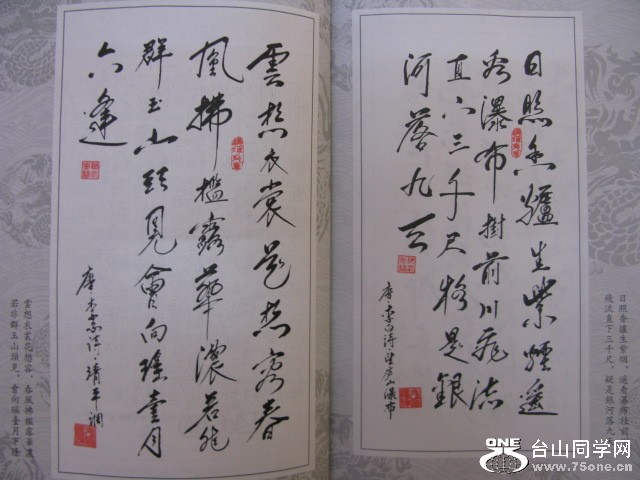 日照香爐生紫煙遙
看瀑布掛前川飛流
直下三千尺疑是銀
河落九天
唐李白詩望庐山瀑布
日照香爐生紫烟，遙看瀑布挂前
飛流直下三千尺，疑是銀河落九
雲想衣裳花想容春
風拂檻露華濃若非
群玉山頭見會向瑤臺月
下逢
唐李白詩清平調
雲想衣裳花想容，春風拂檻露華濃
若非群玉山頭見，會向瑤臺月下逢
ONE
台山同学网
www.75one.cn